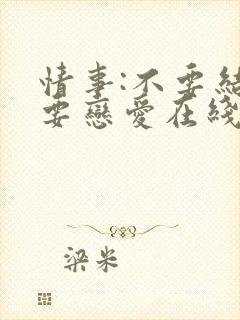 情事:不要結
要戀愛在綫
梁米